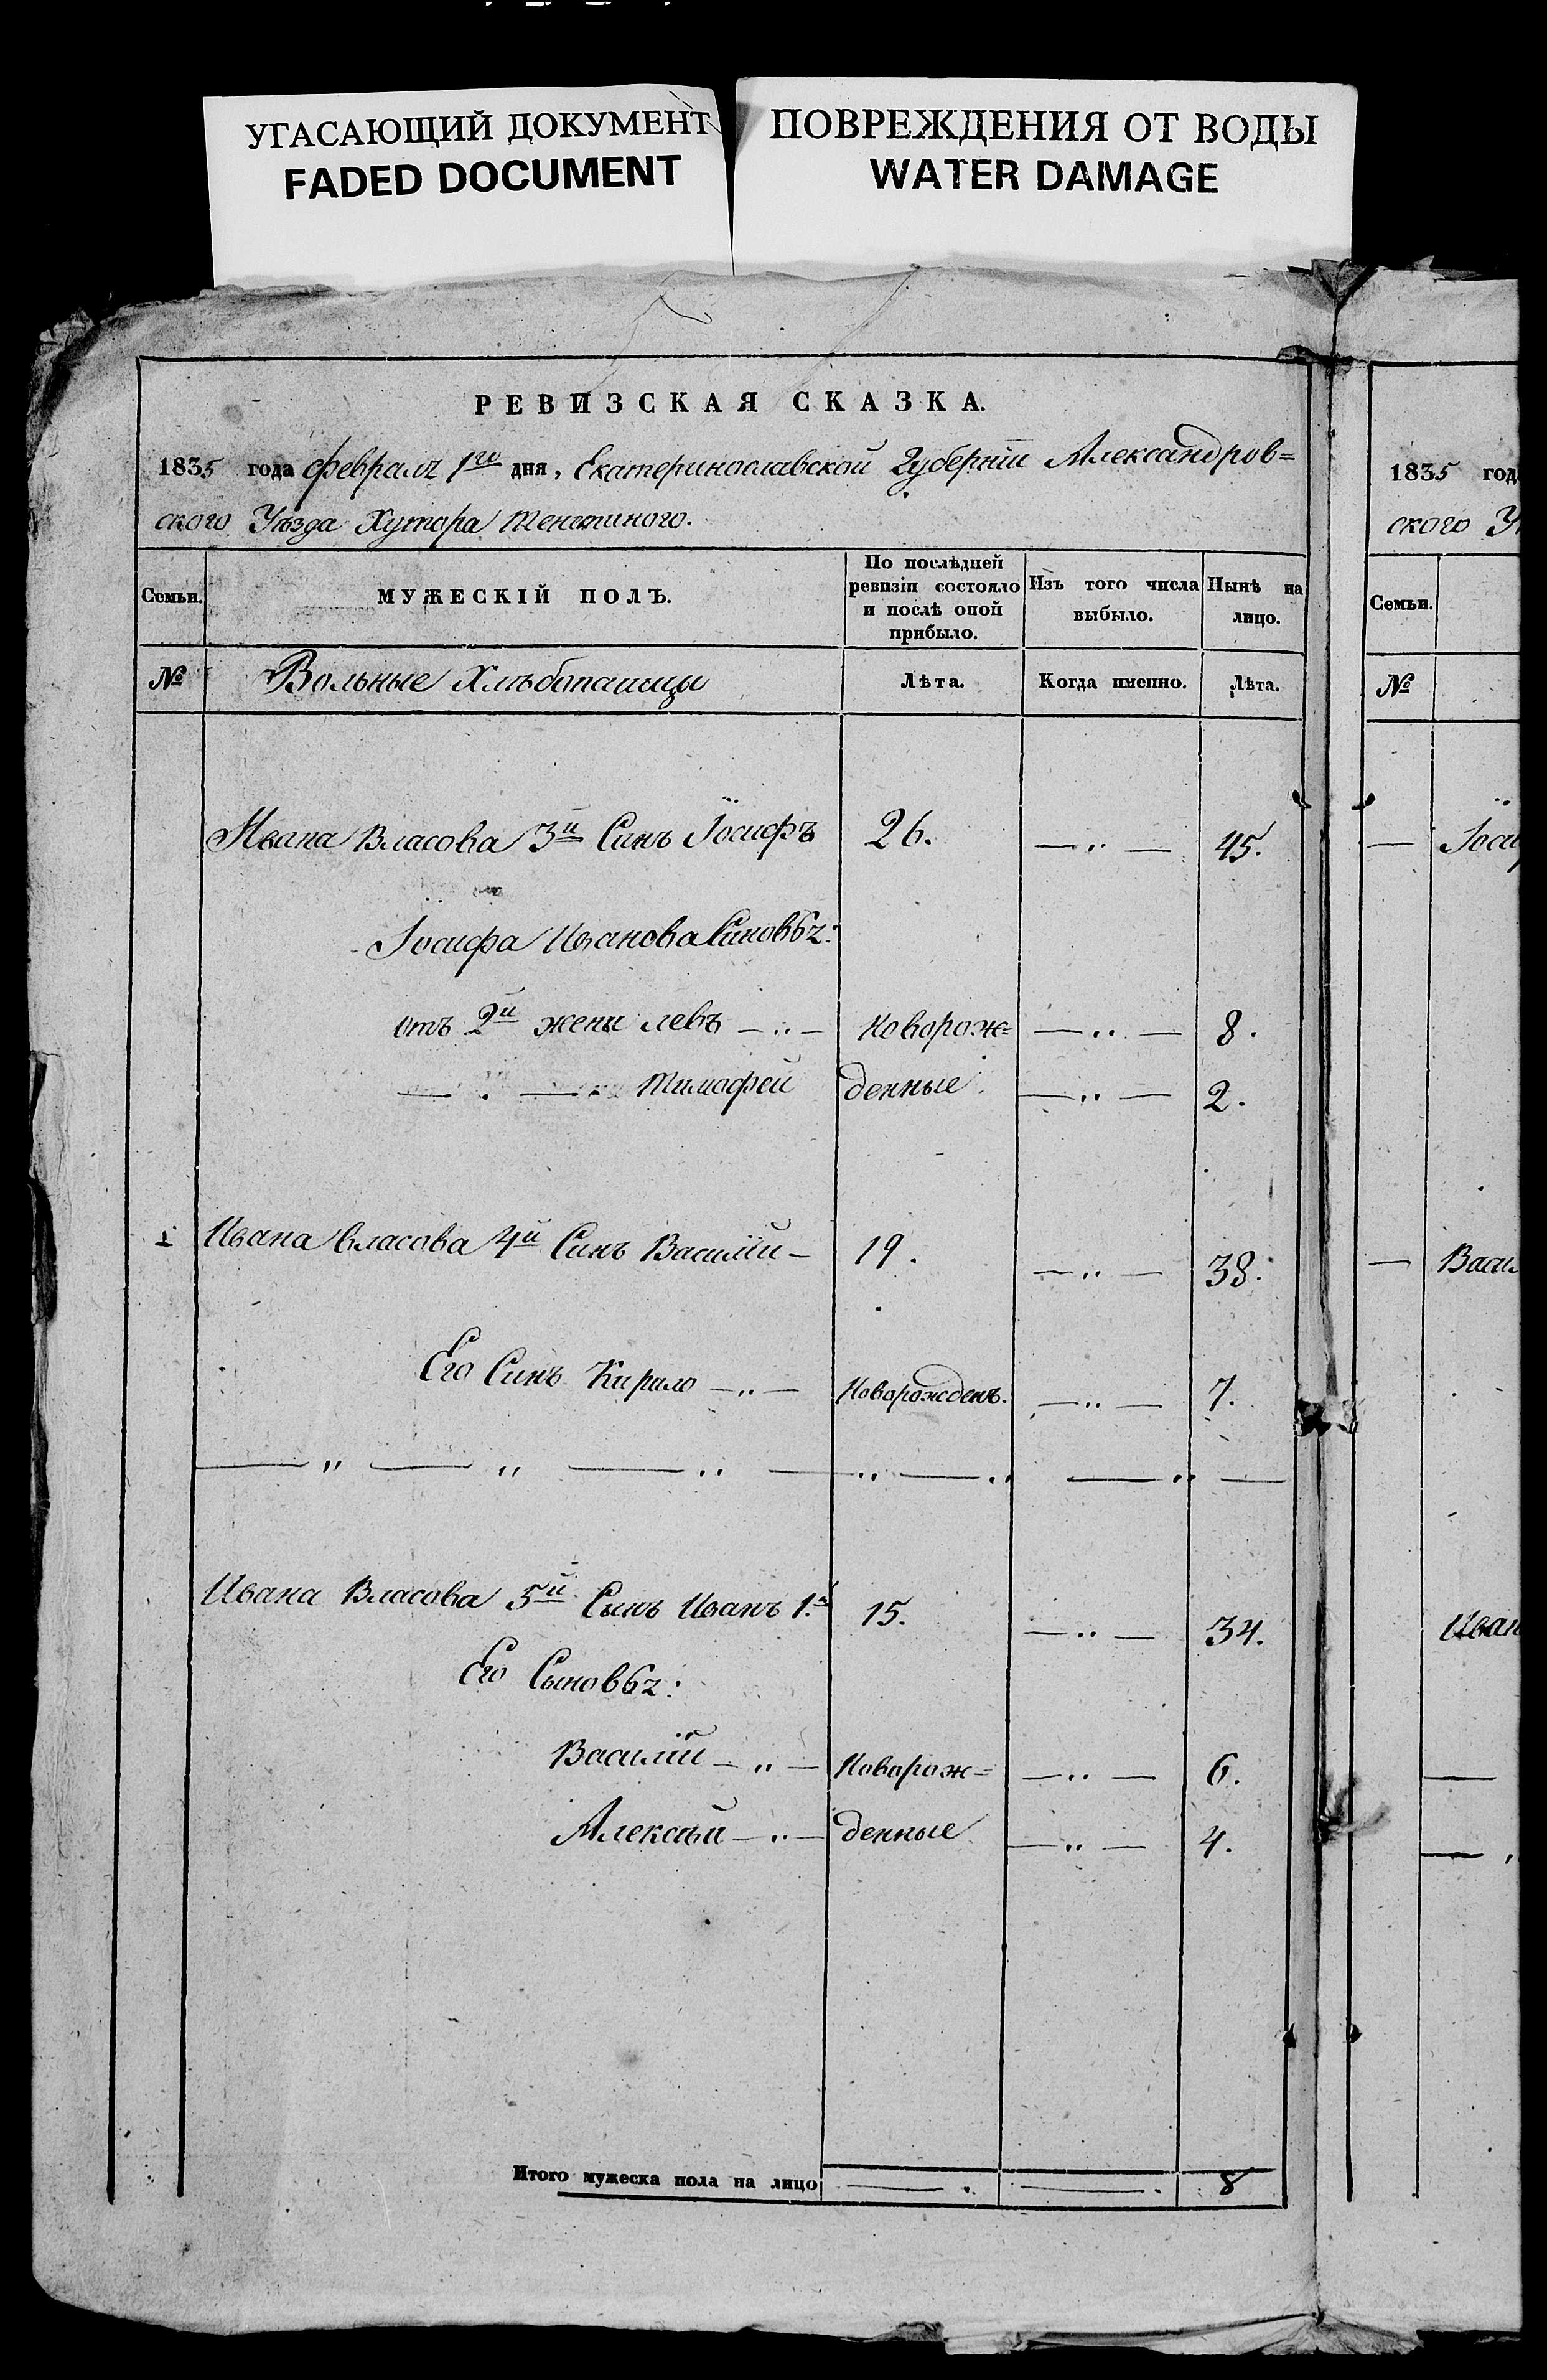 УГАСАЮЩИЙ ДОКУМЕНТ
FADED DOCUMENT
ПОВРЕЖДЕНИЯ ОТ ВОДЫ
WATER DAMAGE
РЕВИЗСКАЯ СКАЗКА.
1835 года февраля 1го дня, Екатеринославской Губернїи Александров=
ского Уѣзда Хутора Тенетиного.
Семьи. МУЖЕСКІЙ ПОЛЪ. По послѣдней ревизіи состояло и послѣ оной прибыло. Изъ того числа выбыло. Нынѣ на лицо.
№ Вольные Хлѣбопашцы Лѣта. Когда именно. Лѣта.
Ивана Власова 3й Синъ Іосифъ 26. — „ — 45.
Іосифа Иванова Синовья:
отъ 2й жены левъ — „ — Новорож= — „ — 8.
— „ — „ Тимофей денные — „ — 2.
Ивана власова 4й Синъ Василїй — 19. — „ — 38.
Его Синъ Кирило — „ — Новорожденъ. — „ — 7.
— „ — „ — „ — „ — „ — „ —
Ивана Власова 5й Сынъ Иванъ 1.й 15. — „ — 34.
Его Сыновья:
Василїй — „ — Новорож= — „ — 6.
Алексѣй — „ — денные — „ — 4.
Итого мужеска пола на лицо — . — . 8
1835 год
ского У
Семьи.
№
— Іоси
— Васи
Иван